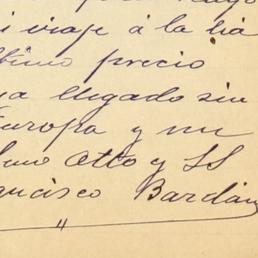 i viaje á la
timo precio
llegado sin
Europa y me
Atto y SS
ncisco Bardán